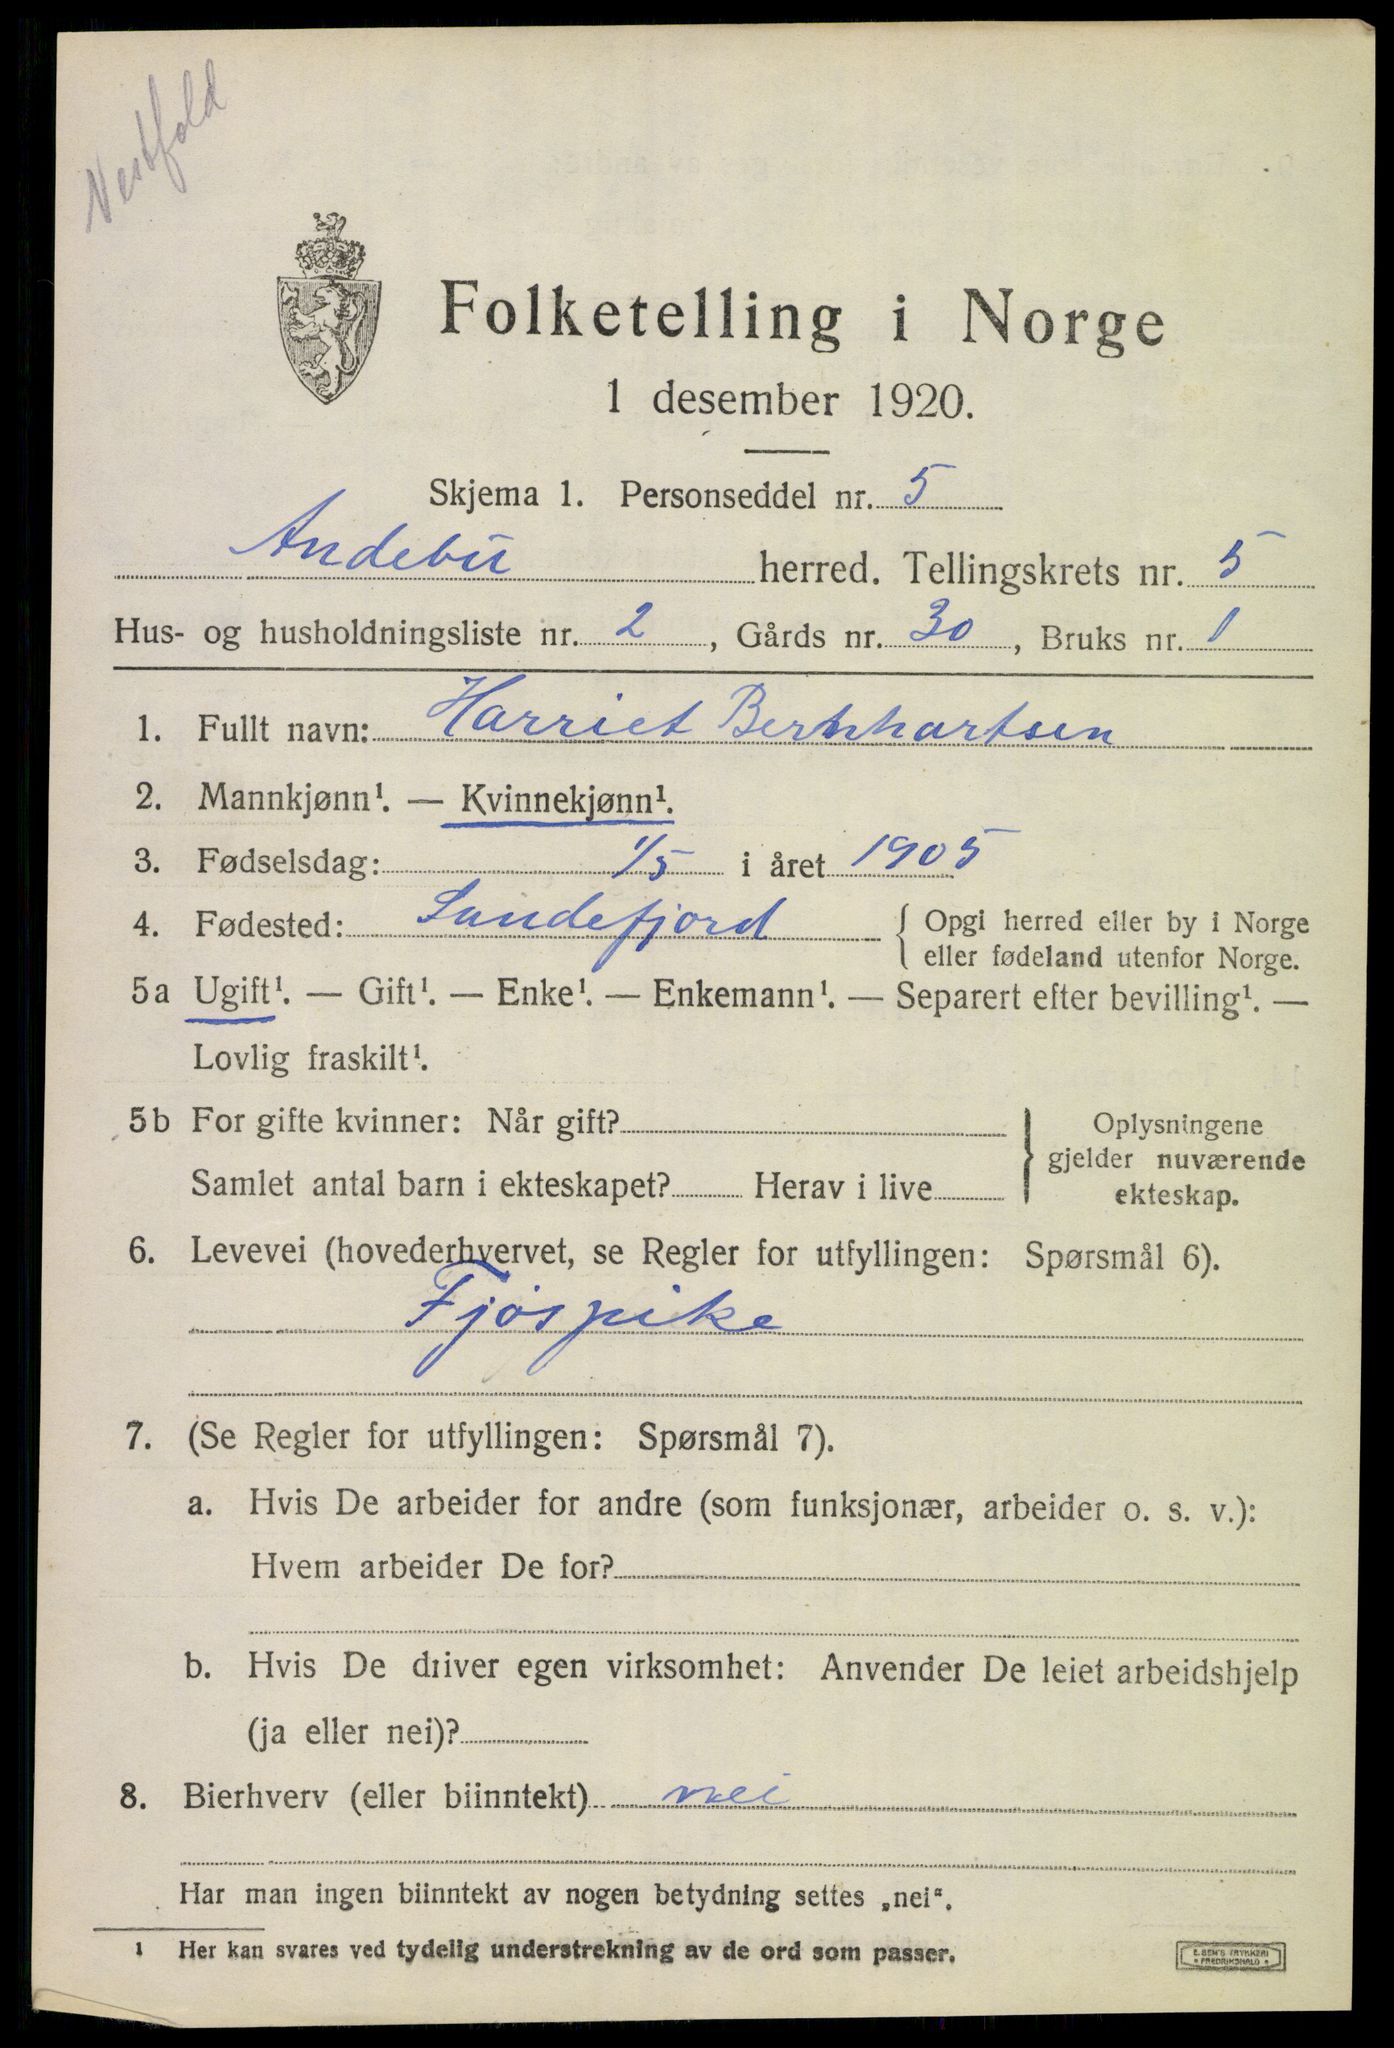 Vestfold
Folketelling i Norge
1 desember 1920.
Skjema 1. Personseddel nr. 5
Andebu herred. Tellingskrets nr. 5
Hus- og husholdningsliste nr. 2, Gårds nr. 30, Bruks nr. 1
1. Fullt navn: Harriet Bernhartsen
2. Mannkjønn¹. — Kvinnekjønn¹.
3. Fødselsdag: 1/5 i året 1905
4. Fødested: Sandefjord { Opgi herred eller by i Norge
eller fødeland utenfor Norge.
5a Ugift¹. — Gift¹. — Enke¹. — Enkemann¹. — Separert efter bevilling¹. —
Lovlig fraskilt¹.
5b For gifte kvinner: Når gift?
Samlet antal barn i ekteskapet? Herav i live
} Oplysningene
gjelder nuværende
ekteskap.
6. Levevei (hovederhvervet, se Regler for utfyllingen: Spørsmål 6).
Fjøspike
7. (Se Regler for utfyllingen: Spørsmål 7).
a. Hvis De arbeider for andre (som funksjonær, arbeider o. s. v.):
Hvem arbeider De for?
b. Hvis De driver egen virksomhet: Anvender De leiet arbeidshjelp
(ja eller nei)?
8. Bierhverv (eller biinntekt) nei
Har man ingen biinntekt av nogen betydning settes „nei“.
1 Her kan svares ved tydelig understrekning av de ord som passer.
E. SEM'S TRYKKERI
• FREDRIKSHALD •